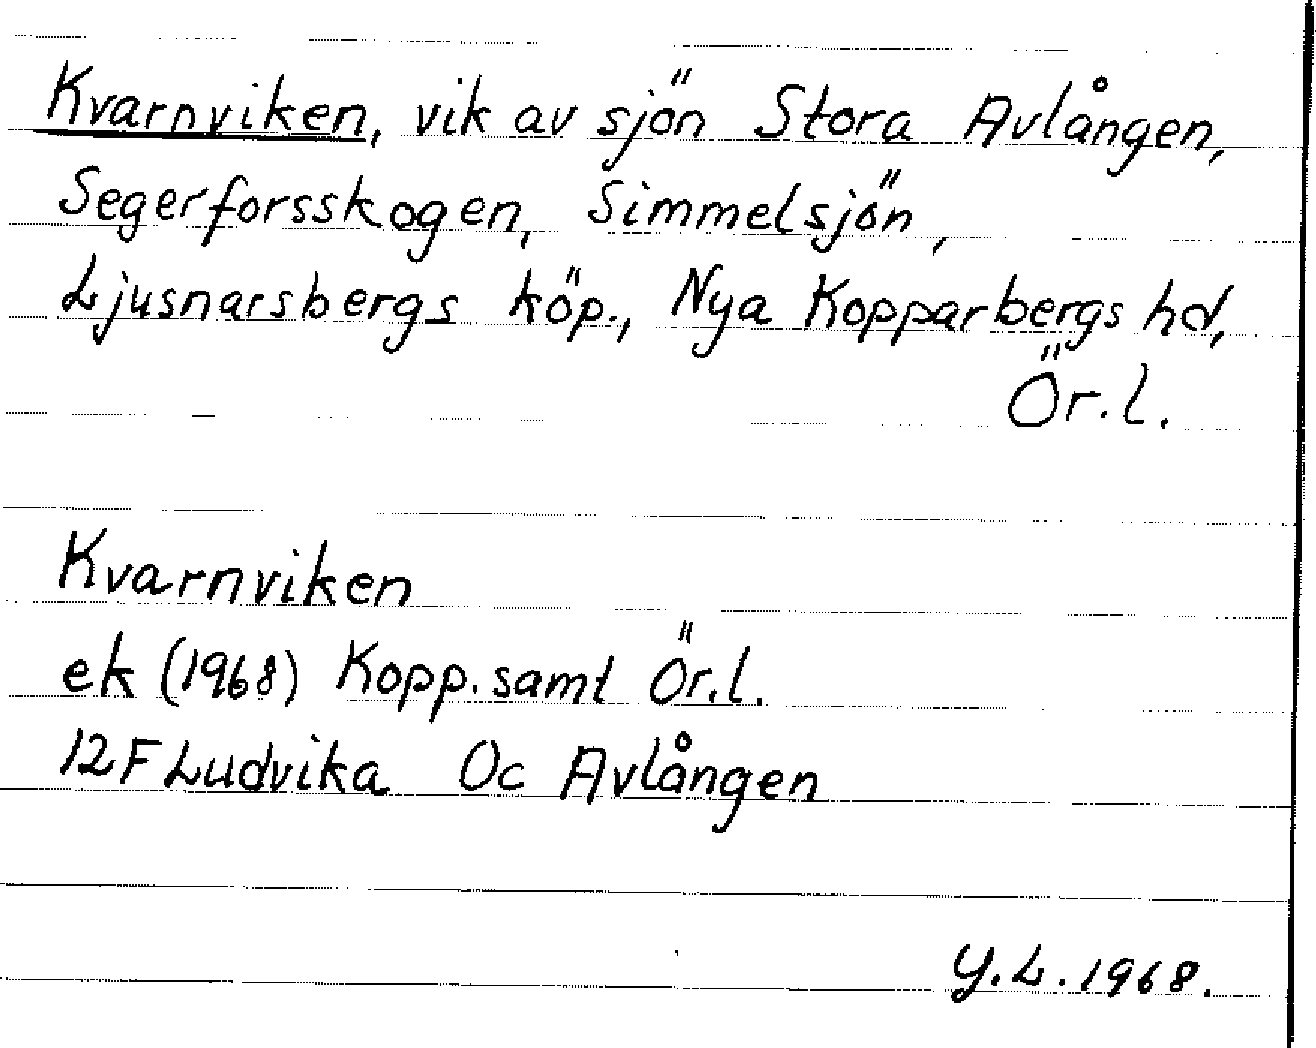 Kvarnviken, vik av sjön Stora Avlången,
Segerforsskogen, Simmelsjön,
Ljusnarsbergs köp., Nya Kopparbergs hd,
Ör.l.
Kvarnviken
ek (1968) Kopp. samt Ör.l.
12F Ludvika Oc Avlången
Y.L. 1968.